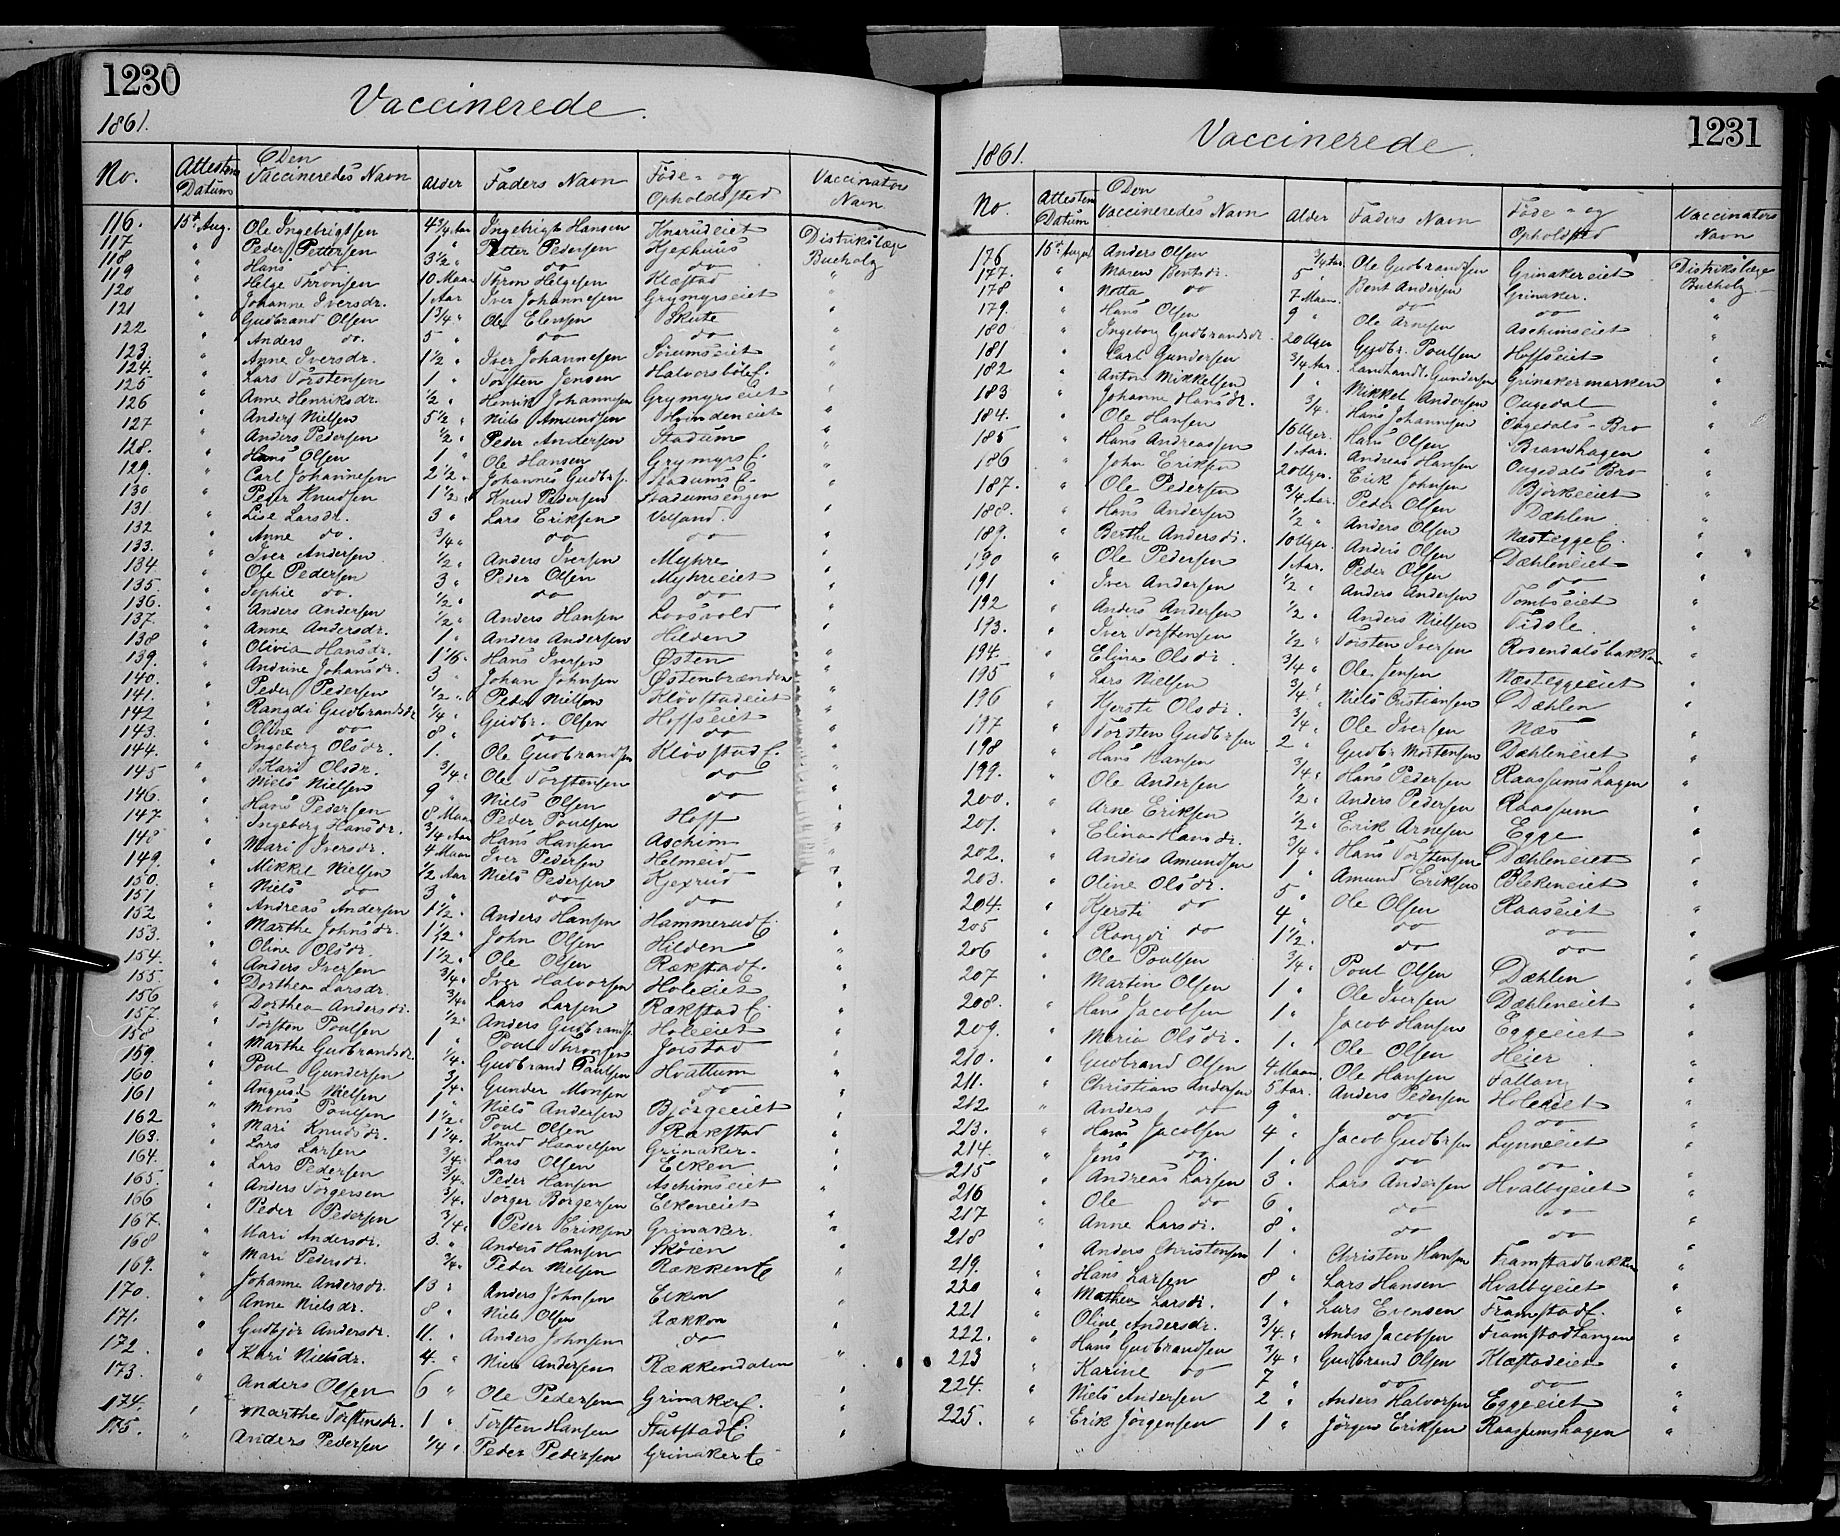 1230
Vaccinerede.
1861.
No. Attestens Datum Den Vaccineredes Navn Alder Faders Navn Føde- og Opholdssted Vaccinators Navn
116. 15de Aug. Ole Ingebrigtsen 4 3/4 Aar Ingebrigt Hansen Knarudeiet Distriktslæge
117 " Peder Pettersen 1 " Petter Pedersen Kjexhuus Bucholz
118 " Hans do 3 1/2 " do do "
119 " Helge Thronsen 10 Maan Thron Helgesen Klæstad "
120 " Johanne Iversdr. 1 Aar Iver Johannesen Grymyrseiet "
121 " Gudbrand Olsen 1 3/4 " Ole Elensen Skute "
122 " Anders do. 5 " do do "
123. " Anne Iversdr. 1 1/2 " Iver Johannesen Sørumseiet "
124. " Lars Torstensen 1 " Torsten Jensen Halvorsbøle E. "
125 " Anne Henriksdr. 1/2 " Henrik Johannesen Grymyrseiet "
126 " Anders Nielsen 5 1/2 " Niels Amundsen "
127 " Anders Pedersen 1/2 " Peder Andersen Stadum "
128. " Hans Olsen 1 " Ole Hansen Grymyrs E. "
129. " Carl Johannesen 2 1/2 " Johannes Gudbr. Stadums E. "
130 " Peder Knudsen 1 1/2 " Knud Pedersen Stadumsengen "
131. " Lise Larsdr. 3 " Lars Eriksen Velsand. "
132 " Anne do. 3/4 " do do "
133. " Iver Andersen 1/2 " Anders Iversen Myhre "
134. " Ole Pedersen 3 " Peder Olsen Myhreeiet "
135. " Sophie do. 1/2 " do do "
136. " Anders Andersen 1/2 " Anders Hansen "
137. " Anne Andersdr. 1 " Anders Andersen Hilden "
138 " Olivia Hansdr. 1 1/6 " Hans Iversen Østen "
139. " Andrine Johansdr. 3 " Johan Johnsen Østenbrænden "
140. " Peder Pedersen 1/2 " Peder Nielsen Kløvstadeiet "
141. " Rangdi Gudbrandsdr 1/4 " Gudbr. Olsen Hoffseiet "
142 " Oline do 8 " do do "
143. " Ingeborg Olsdr. 1. Ole Gudbrandsen Kløvstad E. "
144. " Kari Olsdr. 3/4 " Ole Torstensen do "
145 " Niels Nielsen 9 " Niels Olsen do "
146. " Hans Pedersen 8 Maan Peder Poulsen Hoff "
147 " Ingeborg Hansdr. 3/4 Aar Hans Hansen Aschim "
148 " Mari Iversdr. 4 Maan Iver Pedersen Helmeid "
149. " Mikkel Nielsen 1/2 Aar Niels Pedersen Kjexrud "
150. " Niels do 3 " do do "
151 " Andreas Andersen 1 1/2 " Anders Hansen Hammerud E. "
152 " Marthe Johnsdr. 1 1/2 " John Olsen Hilden "
153. " Oline Olsdr. 1 1/2 " Ole Olsen Rækstad E. "
154. " Anders Iversen 3/4 " Iver Halvorsen Holeeiet "
155. " Dorthea Larsdr. 3/4 " Lars Larsen Rækstad E. "
156 " Dorthea Andersdr. 1/2 " Anders Gudbrands. Holeeiet "
157. " Torsten Poulsen 1 " Poul Thronsen Jorstad "
158 " Marthe Gudbrandsdr 1/4 " Gudbrand Paulsen Hvattum "
159. " Poul Gundersen 3/4 " Gunder Monsen do "
160 " August Nielsen 1 " Niels Andersen Bjørgeeiet "
161 " Mons Poulsen 1 1/2 " Poul Olsen Rækstad "
162 " Mari Knudsdr. 1 1/4 " Knud Haavelsen Grinaker. "
163. " Lars Larsen 3/4 " Lars Olsen Elken "
164. " Lars Pedersen 3/4 " Peder Hansen Aschimseiet "
165. " Anders Torgersen 3/4 " Torger Borgersen Elkeneiet "
166 " Peder Pedersen 3/4 " Peder Eriksen Grinaker "
167. " Mari Andersdr. 3. " Anders Hansen Skøien "
168 " Mari Pedersdr. 3/4 " Peder Nielsen Rækken E "
169. " Johanne Andersdr. 13 " Anders Johnsen Elken "
170. " Anne Nielsdr. 8 " Niels Olsen Rækken "
171. " Gudbjør Andersdr. 11. " Anders Johnsen do "
172. " Kari Nielsdr. 4. " Niels Andersen Rækkendalen "
173. " Anders Olsen 6 " Ole Pedersen Grinaker E. "
174. " Marthe Torstensdr. 1 " Torsten Hansen Stubstad E "
175. " Anders Pedersen 1/4 " Peder Pedersen Grinaker E "
1231
Vaccinerede.
1861.
No. Attestens Datum Den Vaccineredes Navn Alder Faders Navn Føde- og Opholdsted Vaccinators Navn
176 15de August Anders Olsen 3/4 Aar Ole Gudbrandsen Grinakereiet Distriktslæge
177. " Maren Bentsdr. 5 " Bent Andersen Grinaker. Bucholz
178 " Notta do 7 Maan do do "
179. " Hans Olsen 9 " Ole Arnesen Aschimseiet "
180. " Ingeborg Gudbrandsdr. 20 Uger Gudbr. Poulsen Hoffseiet "
181 " Carl Gundersen 3/4 Aar. Landhandl. Gundersen Grinakermarken "
182 " Anton Mikkelsen 1 " Mikkel Andersen Ougedal "
183 " Johanne Hansdr. 3/4 " Hans Johannesen Ougedals-Bro "
184. " Ole Hansen 16 Uger. Hans Olsen Brandhagen "
185 " Hans Andreassen 1 Aar. Andreas Hansen Ougedals Bro "
186 " John Eriksen 20 Uger. Erik Johnsen Bjørkeeiet "
187. " Ole Pedersen 3/4 Aar. Peder Olsen Dæhlen "
188. " Hans Andersen 1/2 " Anders Olsen Næsteggo E. "
189. " Berthe Andersdr. 10 Uger. Anders Olsen Dæhleneiet "
190 " Ole Pedersen 1 Aar. Peder Olsen do "
191 " Iver Andersen 1/2 " Anders Andersen Tombseiet "
192 " Anders Andersen 1/2 " Anders Nielsen "
193. " Iver Torstensen 1/2 " Torsten Iversen Rosendalsbakken "
194. " Elina Olsdr. 3/4 " Ole Jensen Næsteggeeiet "
195 " Lars Nielsen 3/4 " Niels Cristiansen Dæhlen "
196 " Kjersti Olsdr. 3/4 " Ole Iversen Næs "
197 " Torsten Gudbrsen 2 " Gudbr. Mortensen Dæhleneiet "
198 " Hans Hansen 3/4 " Hans Pedersen Raassumshagen "
199. " Ole Andersen 1/2 " Anders Pedersen Raassum "
200. " Arne Eriksen 1/2 " Erik Arnesen Egge "
201. " Elina Hansdr. 3/4 " Hans Torstensen Dæhleneiet "
202. " Anders Amundsen 1 " Amund Eriksen Blekeneiet "
203. " Oline Olsdr. 5 " Ole Olsen Raaseiet "
204. " Kjersti do 4 " do do "
205 " Rangdi do 1 1/2 " do do "
206 " Ole Poulsen 3/4 " Poul Olsen Dæhlen "
207 " Martin Olsen 1 " Ole Iversen Dæhleneiet "
208. " Hans Jacobsen 1 " Jacob Hansen Eggeeiet "
209. " Maria Olsdr. 1. Ole Olsen Heier "
210. " Gudbrand Olsen 4 Maan. Ole Hansen Fallang "
211. " Christian Andersen 5 Aar. Anders Pedersen Holeeiet "
212 " Anders do 9 " do do "
213. " Hans Jacobsen 4 " Jacob Gudbrsen Lynneeiet "
214. " Jens do. 1 " do do "
215 " Andreas Larsen 3. " Lars Andersen Hvalbyeiet "
216 " Ole do 6 " do do "
217 " Anne Larsdr. 8 " do do "
218 " Anders Christensen 1 " Christen Hansen Framstadbakken "
219. " Hans Larsen 8 " Lars Hansen Hvalbyeiet "
220 " Mathea Larsdr. 1 " Lars Evensen Framstad E. "
221 " Oline Andersdr. 3/4 " Anders Jacobsen Framstadtangen "
222. " Hans Gudbrandsen 3/4 " Gudbrand Olsen Klæstadeiet "
223 " Karine do 7 " do do "
224. " Niels Andersen 2 " Anders Halvorsen Eggeeiet "
225. " Erik Jörgensen 1 " Jörgen Eriksen Raassumshagen "